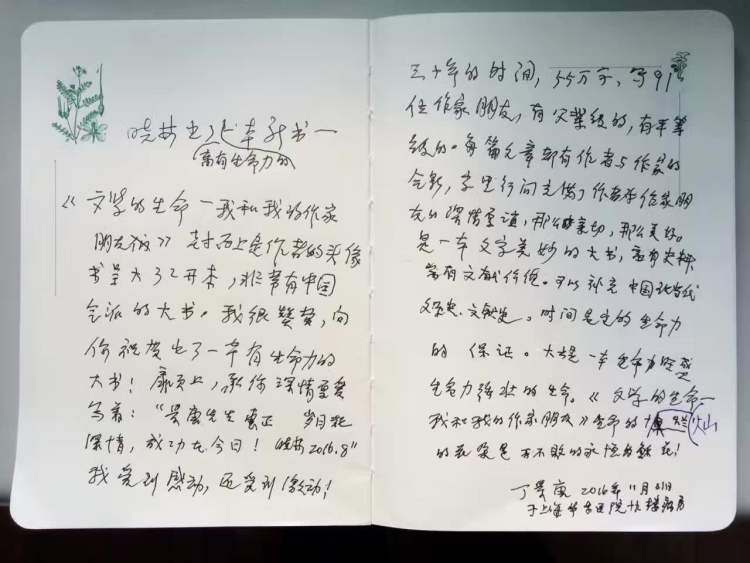 晓林出了本新书一
富有生命力的
《文学的生命一我和我的作家
朋友们》封面上是作者的头像
书是大32开本，非常有中国
气派的大书。我很赞赏，向
你祝贺出了一本有生命力的
大书！扉页上，承你深情重爱
写着：“景唐先生惠正 岁月
深情，成功在今日！晓林2016.8"
我受到感动，还受到激动！
三十年的时间，55万字，写91
位作家朋友，有父辈级的，有平辈
级的。每篇文章都有作者与作家的
合影，字里行间充满了作者和作家朋
友的深情重谊，那么亲切，那么美好。
是一本文字美妙的大书，富有史料
富有文献价值。可以补充中国现当代
文学史、文献史。时间是它的生命力
的保证。大书是一本生命力
生命力强壮的生命。《文学的生命一
我和我的作家朋友》生命的灿
的花朵是开不败的永恒的鲜花！
丁景唐 2016年11月
于上海华东医院 楼病房